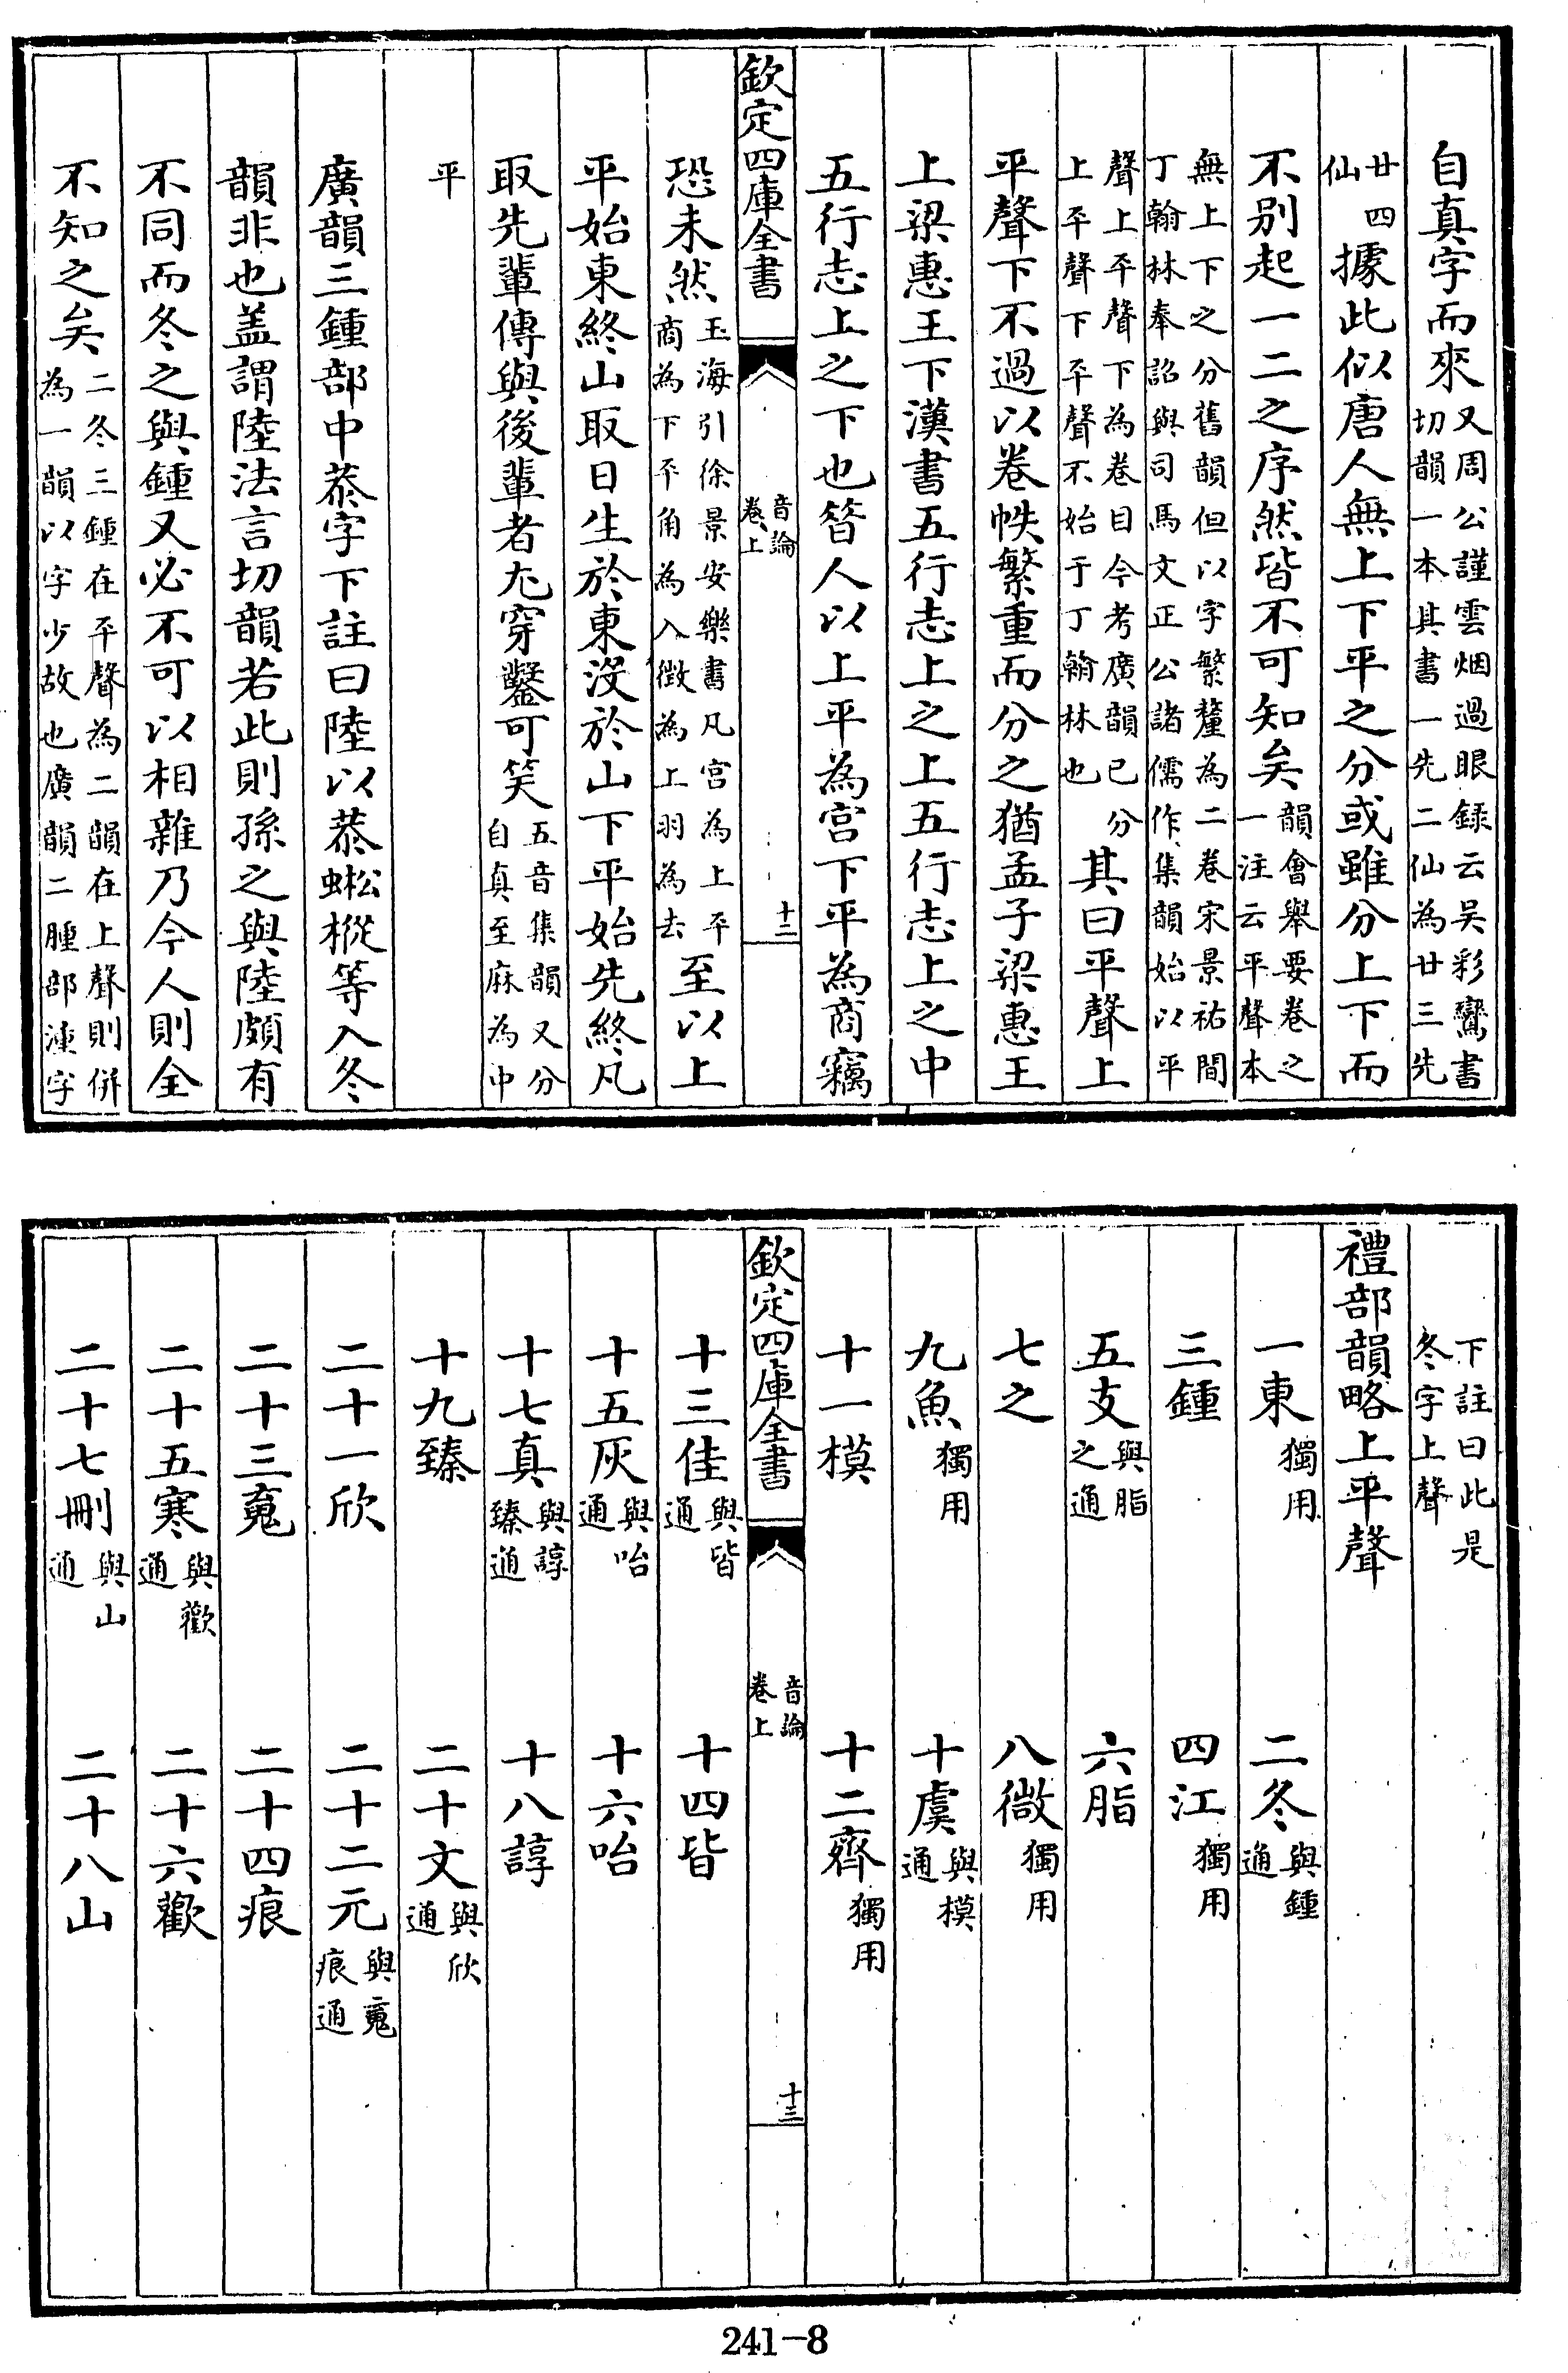 自真字而來又周公謹雲烟過眼録云吴彩鸞書切韻一本其書一先二仙為廿三先
廿四仙據此似唐人無上下平之分或雖分上下而
不别起一二之序然皆不可知矣韻會舉要卷之一注云平聲本
無上下之分舊韻但以字繁釐為二卷宋景祐間丁翰林奉詔與司馬文正公諸儒作集韻始以平
聲上平聲下為卷目今考廣韻已分上平聲下平聲不始于丁翰林也其曰平聲上
平聲下不過以卷帙繁重而分之猶孟子梁惠王
上梁惠王下漢書五行志上之上五行志上之中
五行志上之下也昝人以上平為宫下平為商竊
欽定四庫全書
音論
卷上
十二
恐未然玉海引徐景安樂書凡宫為上平商為下平角為入徴為上羽為去至以上
平始東終山取日生於東沒於山下平始先終凡
取先輩傳與後輩者尤穿鑿可笑五音集韻又分自真至麻為中
平
廣韻三鍾部中恭字下註曰陸以恭蜙樅等入冬
韻非也盖謂陸法言切韻若此則孫之與陸頗有
不同而冬之與鍾又必不可以相雜乃今人則全
不知之矣二冬三鍾在平聲為二韻在上聲則併為一韻以字少故也廣韻二腫部湩字
下註曰此是冬字上聲
禮部韻略上平聲
一東獨用 二冬與鍾通
三鍾 四江獨用
五支與脂之通 六脂
七之 八微獨用
九魚獨用 十虞與模通
十一模 十二齊獨用
欽定四庫全書
音論
卷上
十三
十三佳與皆通 十四皆
十五灰與咍通 十六咍
十七真與諄臻通 十八諄
十九臻 二十文與欣通
二十一欣 二十二元與䰟痕通
二十三䰟 二十四痕
二十五寒與歡通 二十六歡
二十七刪與山通 二十八山
241-8